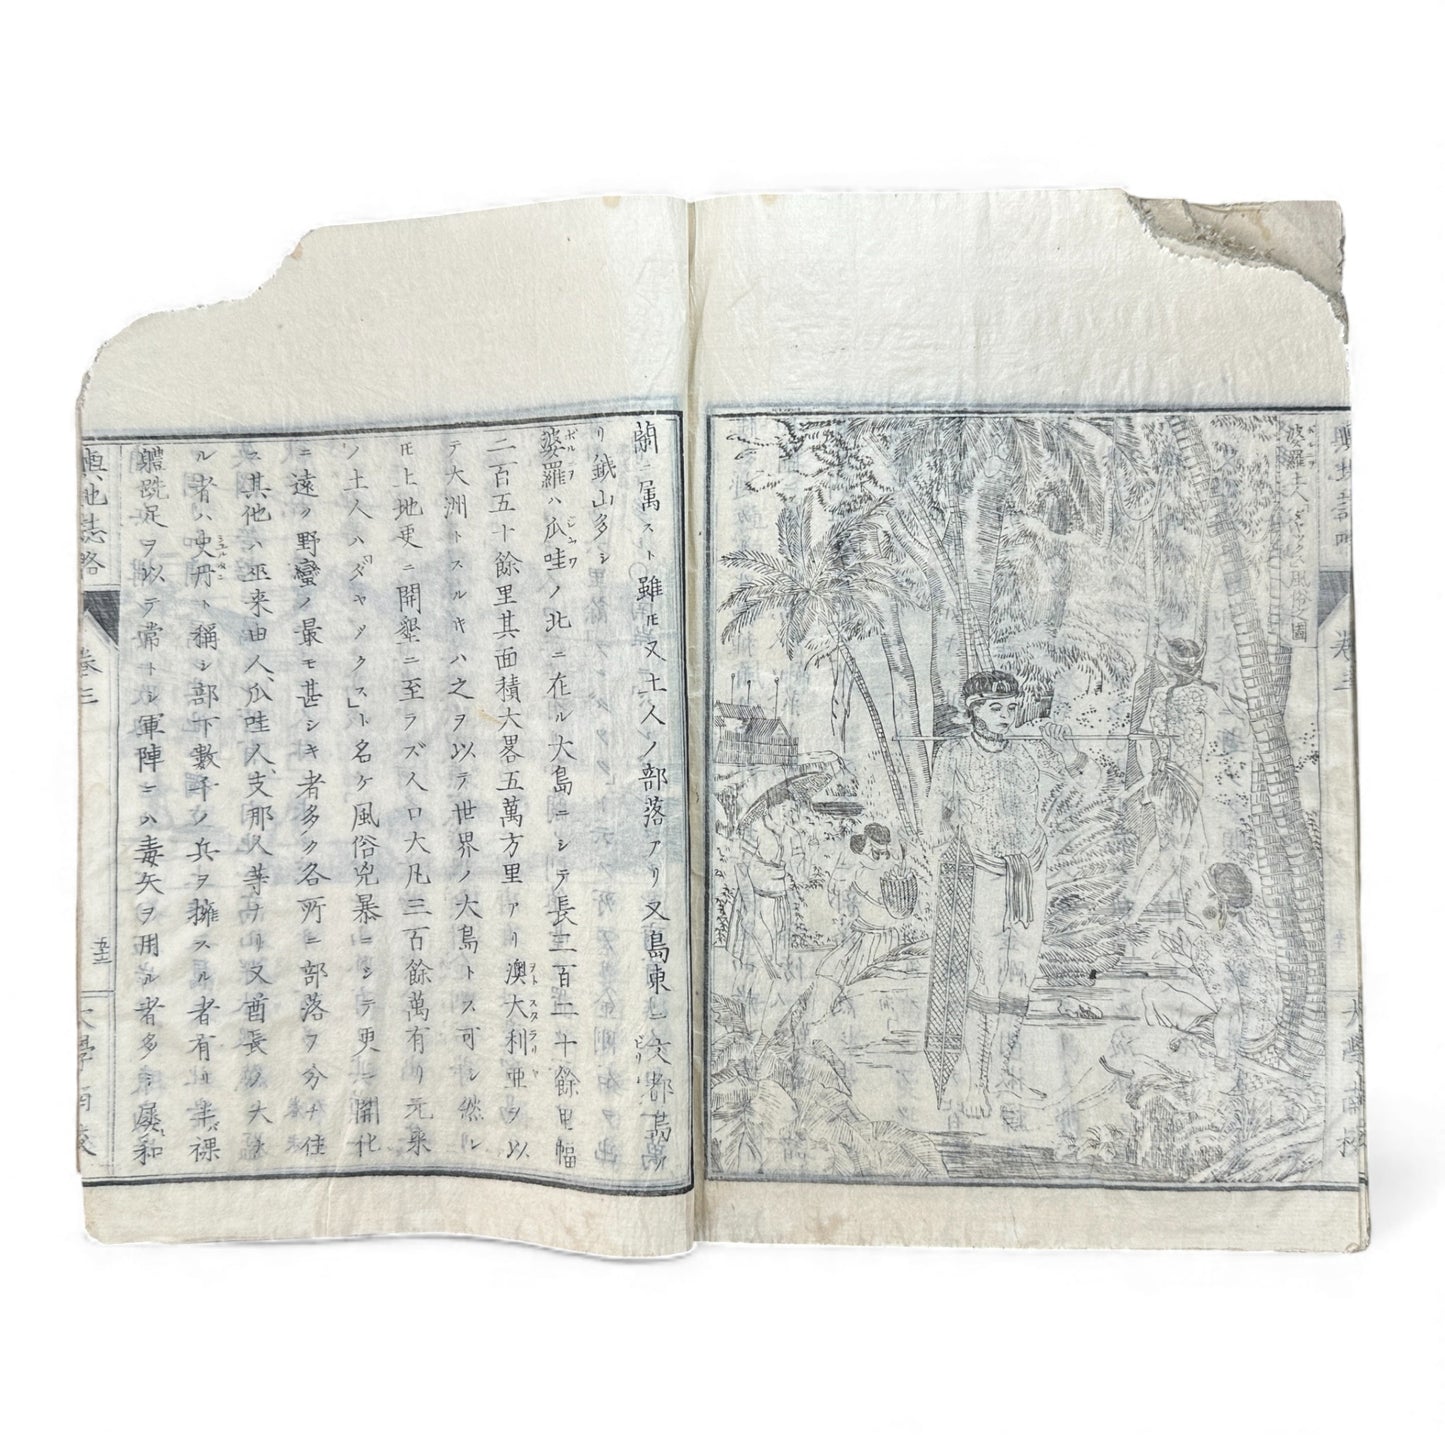 婆羅土人「ダヤック」風俗之圖
輿地誌略
卷三
大學南校
蘭ニ属スト雖モ又土人ノ部落アリ又島東ニ文都島ノ
リ鉄山多シ
婆羅ハ瓜哇ノ北ニ在ル大島ニシテ長三百二十餘里幅
二百五十餘里其面積大畧五萬方里アリ澳大利亜ヲ以
テ大洲トスルキハ之ヲ以テ世界ノ大島トス可シ然レ
𪜈土地更ニ開墾ニ至ラズ人口大凡三百餘萬有リ元来
ノ土人ハ「ダヤックス」ト名ケ風俗兇暴ニシテ更ニ開化
ニ遠ク野蠻ノ最モ甚シキ者多ク各所ニ部落ヲ分チ住
ス其他ハ巫来由人、瓜哇人、支那人等ナリ又酋長ノ大
ル者ハ史丹ト稱シ部下數千ノ兵ヲ擁スル者有リ皆裸
體跣足ヲ以テ常トシ軍陣ニハ毒矢ヲ用ル者多シ
輿地誌略
卷三
五十二
大學南校